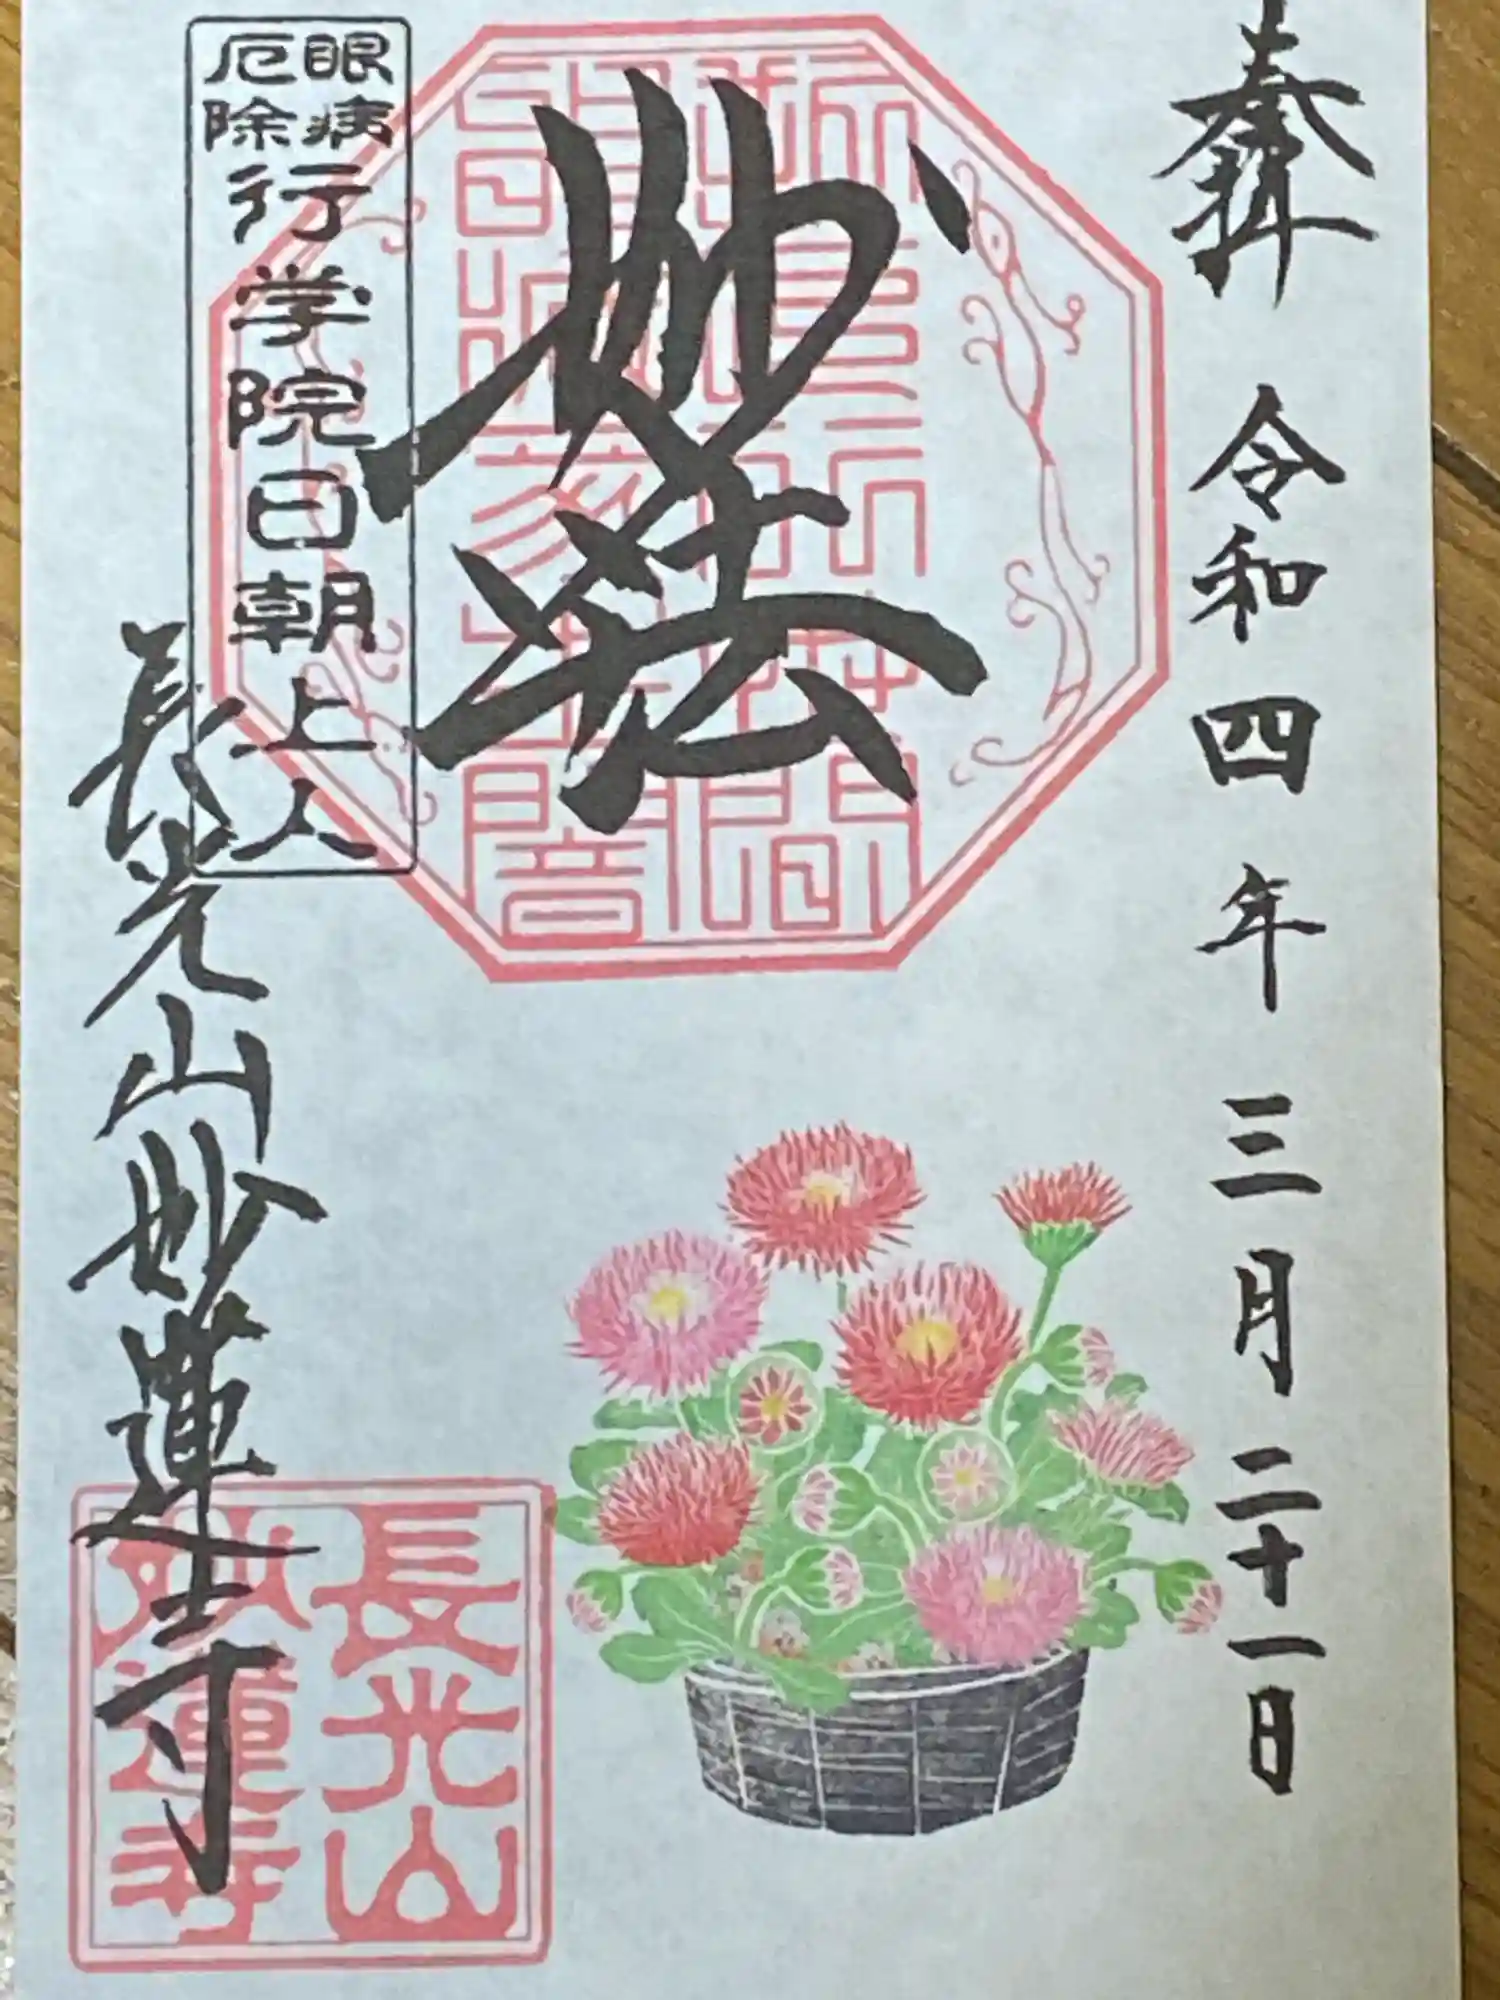 奉拝 令和四年三月二十一日
妙法
眼病
厄除
行学院日朝上人
長光山妙蓮寺
長光山
妙蓮寺